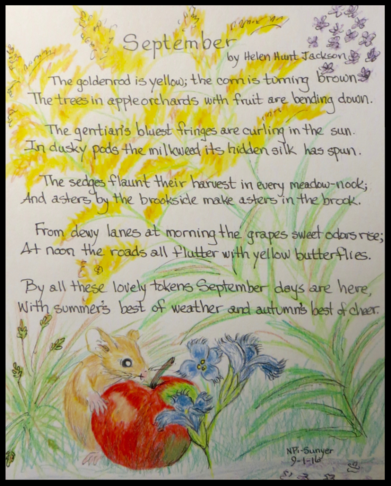 September
by Helen Hunt Jackson
The goldenrod is yellow; the corn is turning brown;
The trees in apple orchards with fruit are bending down.
The gentian's bluest fringes are curling in the sun.
In dusky pods the milkweed its hidden silk has spun.
The sedges flaunt their harvest in every meadow-nook;
And asters by the brookside make asters in the brook.
From dewy lanes at morning the grapes sweet odors rise;
At noon the roads all flutter with yellow butterflies.
By all these lovely tokens September days are here,
With summer's best of weather and autumn's best of cheer.
9-1-16